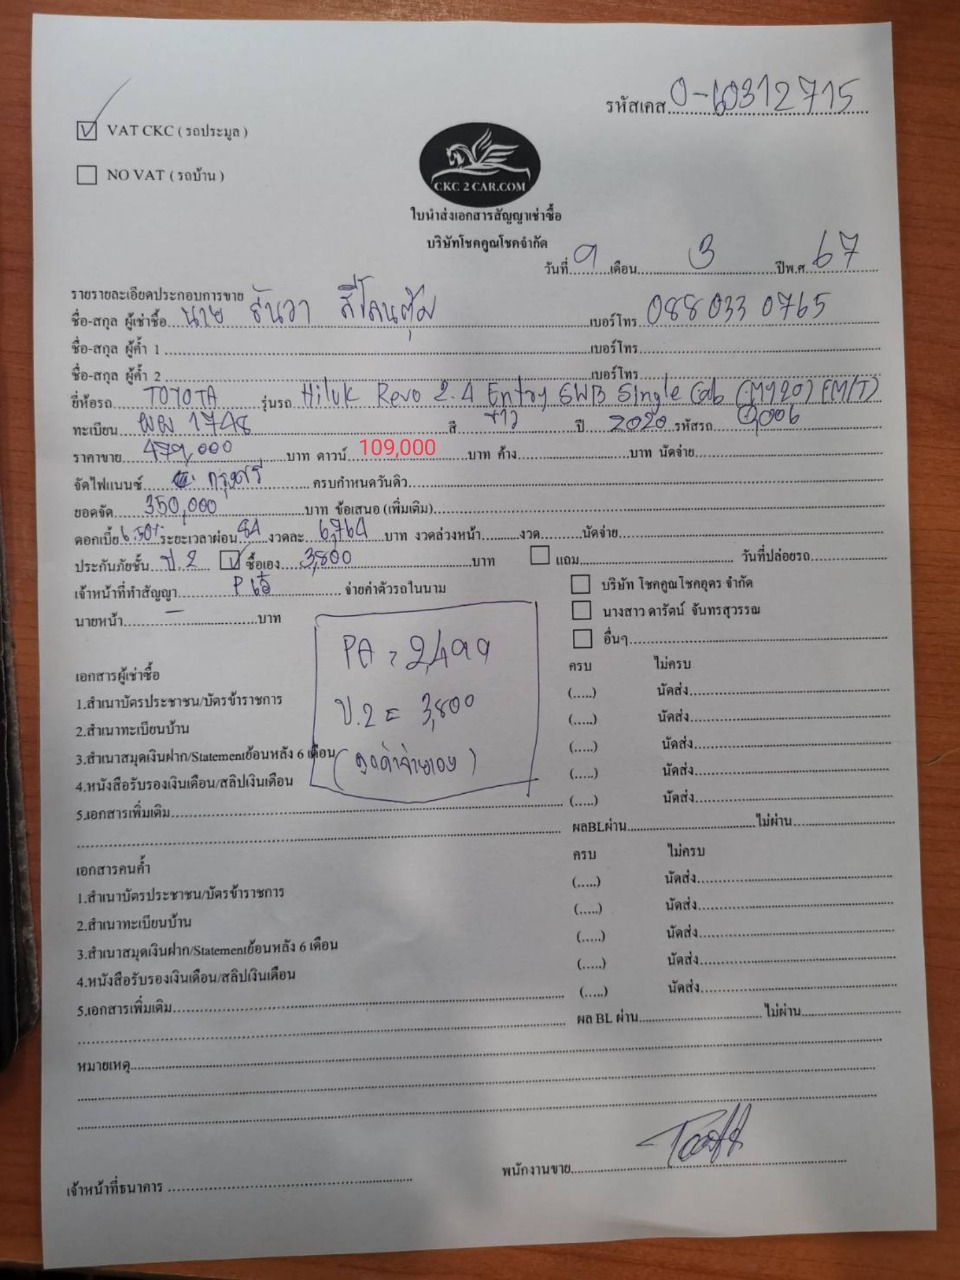 รหัสเคส 0-60312715
VAT CKC ( รถประมูล )
NO VAT ( รถบ้าน )
CKC 2 CAR.COM
ใบนำส่งเอกสารสัญญาเช่าซื้อ
บริษัทโชคคูณโชคจำกัด
วันที่ 9 เดือน 3 ปีพ.ศ. 67
รายรายละเอียดประกอบการขาย
ชื่อ-สกุล ผู้เช่าซื้อ นาย ธันวา เบอร์โทร 088 033 0765
ชื่อ-สกุล ผู้ค้ำ 1 เบอร์โทร
ชื่อ-สกุล ผู้ค้ำ 2 เบอร์โทร
ยี่ห้อรถ TOYOTA รุ่นรถ Hilux Revo 2.4 Entry SWB Single Cab (MY20) (M/T)
ทะเบียน 1748 สี ขาว ปี 2020 รหัสรถ
ราคาขาย 479,000 บาท ดาวน์ 109,000 บาท ค้าง บาท นัดจ่าย
จัดไฟแนนซ์ กรุงศรี ครบกำหนดวันดิว
ยอดจัด 350,000 บาท ข้อเสนอ (เพิ่มเติม)
ดอกเบี้ย 6.50% ระยะเวลาผ่อน 84 งวดละ 6,764 บาท งวดล่วงหน้า งวด นัดจ่าย
ประกันภัยชั้น ป.2 ซื้อเอง 3,800 บาท แถม วันที่ปล่อยรถ
เจ้าหน้าที่ทำสัญญา จ่ายค่าตัวรถในนาม บริษัท โชคคูณโชคอุดร จำกัด
นายหน้า - บาท นางสาว ดารัตน์ จันทรสุวรรณ
อื่นๆ
PA = 2,499
ป.2 = 3,800
(ลูกค้าจ่ายเอง)
เอกสารผู้เช่าซื้อ ครบ ไม่ครบ
1.สำเนาบัตรประชาชน/บัตรข้าราชการ (.....) นัดส่ง
2.สำเนาทะเบียนบ้าน (.....) นัดส่ง
3.สำเนาสมุดเงินฝาก/Statementย้อนหลัง 6 เดือน (.....) นัดส่ง
4.หนังสือรับรองเงินเดือน/สลิปเงินเดือน (.....) นัดส่ง
5.เอกสารเพิ่มเติม (.....) นัดส่ง
ผลBLผ่าน ไม่ผ่าน
เอกสารคนค้ำ ครบ ไม่ครบ
1.สำเนาบัตรประชาชน/บัตรข้าราชการ (.....) นัดส่ง
2.สำเนาทะเบียนบ้าน (.....) นัดส่ง
3.สำเนาสมุดเงินฝาก/Statementย้อนหลัง 6 เดือน (.....) นัดส่ง
4.หนังสือรับรองเงินเดือน/สลิปเงินเดือน (.....) นัดส่ง
5.เอกสารเพิ่มเติม (.....) นัดส่ง
ผล BL ผ่าน ไม่ผ่าน
หมายเหตุ
พนักงานขาย
เจ้าหน้าที่ธนาคาร